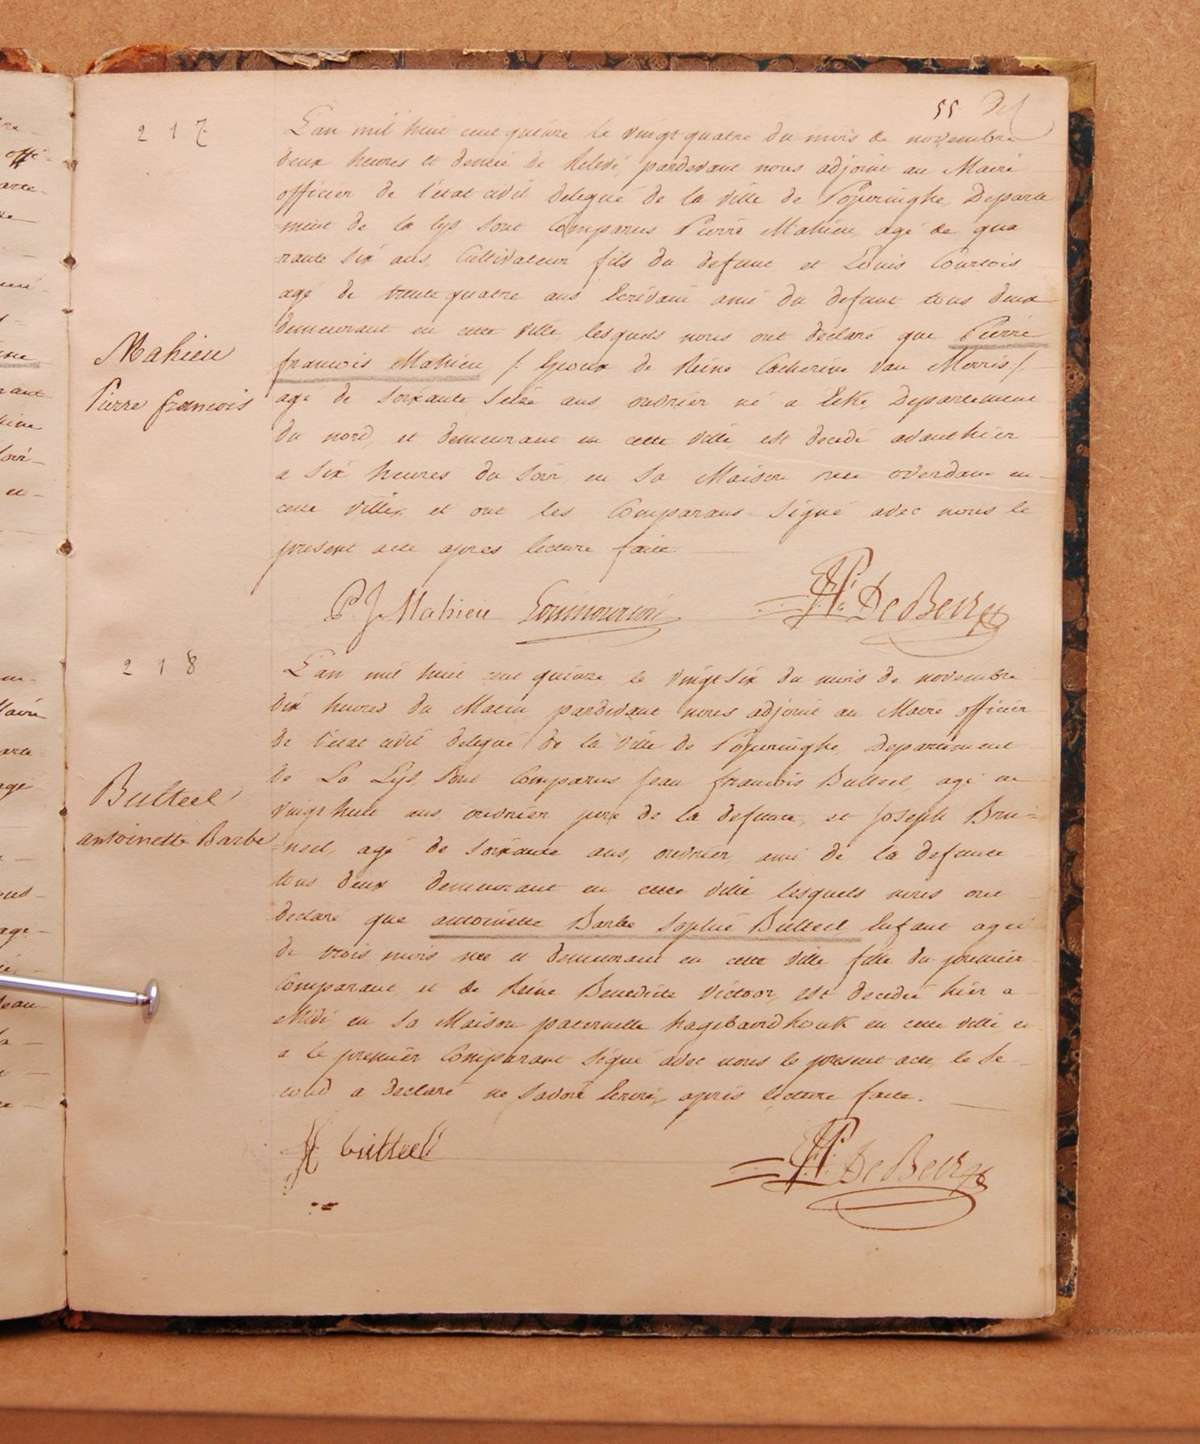 55
217
L'an mil huit cent quinze le vingt quatre du mois de novembre
deux heures et demie de Relevé, pardevant nous adjoint au Maire
officier de l'etat civil delegué de la ville de Poperinghe, Departe
ment de la lys sont Comparus Pierre Mahieu agé de qua
rante Six ans, Cultivateur fils du defunt et Louis Courtois
agé de trente quatre ans Ecrivain ami du defunt tous deux
demeurant en cette ville, lesquels nous ont declaré que Pierre
Mahieu
Pierre francois
francois Mahieu / Epoux de Reine Catherine Van Merris /
agé de soixante Seize ans ouvrier né a Eeke Departement
du nord, et demeurant en cette ville est decedé avanthier
a Six heures du soir en Sa Maison rue overdam en
cette ville, et ont les Comparans Signé avec nous le
present acte après lecture faite.
P. J. Mahieu De Beir
218
L'an mil huit cent quinze le vingt Six du mois de novembre
dix heures du Matin pardevant nous adjoint au Maire officier
de l'etat civil delegué de la Ville de Poperinghe, Departement
de La Lys, Sont Comparus Jean francois Bulteel agé de
Bulteel
antoinette Barbe
vingt huit ans ouvrier pere de la defunte, et Joseph Bru=
neel, agé de soixante ans, ouvrier, ami de la defunte
tous deux demeurant en cette ville lesquels nous ont
declaré que antoinette Barbe Sophie Bulteel Enfant agée
de trois mois née et demeurant en cette ville fille du premier
Comparant, et de Reine Benedicte Victoor, est decedée hier a
Midi en Sa Maison paternelle hagebaerdhouk en cette ville et
a le premier Comparant Signé avec nous le present acte, le Se-
cond a declaré ne Savoir Ecrire, après lecture faite.
bulteel De Beir